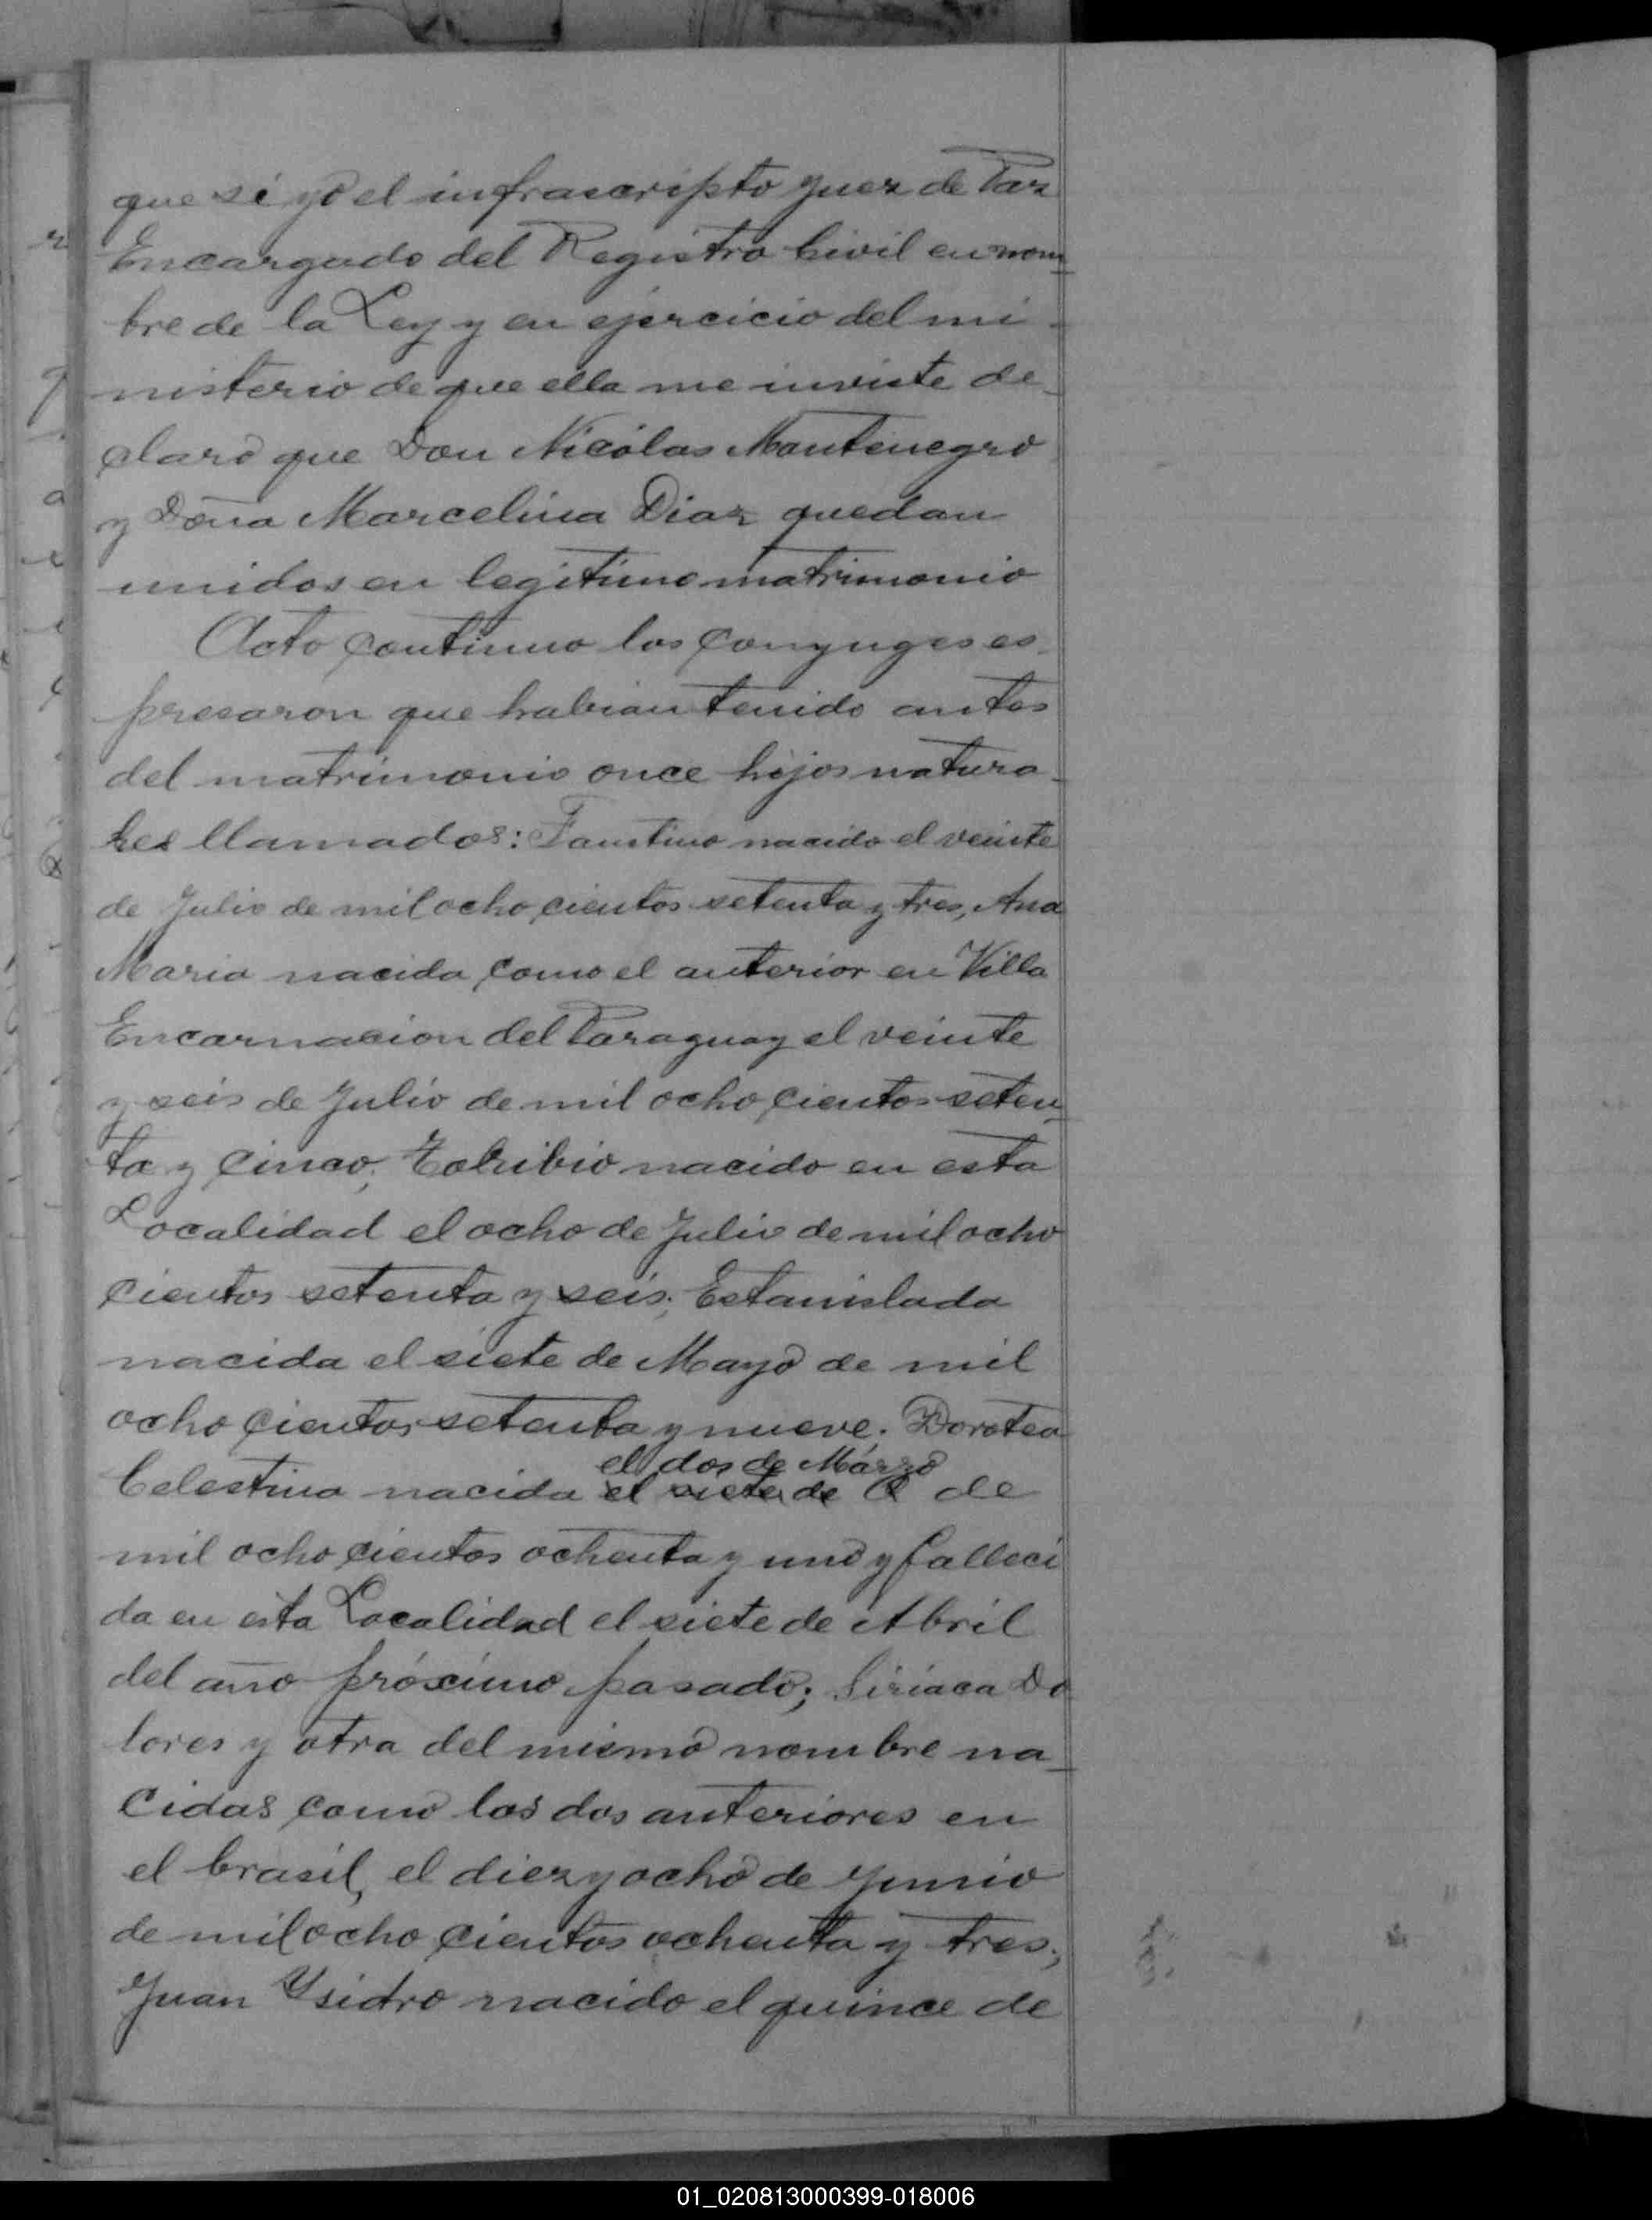 que sí yo el infrascripto Juez de Paz
Encargado del Registro Civil en nom
bre de la Ley y en ejercicio del mi-
nisterio de que ella me inviste de-
claro que Don Nicólas Montenegro
y Doña Marcelina Diaz quedan
unidos en legitimo matrimonio
Acto continuo los conyuges es-
presaron que habian tenido antes
del matrimonio once hijos natura-
les llamados: Faustino nacido el veinte
de Julio de mil ocho cientos setenta y tres, Ana
Maria nacida como el anterior en Villa
Encarnacion del Paraguay el veinte
y seis de Julio de mil ocho cientos seten-
ta y cinco, nacido en esta
Localidad el ocho de Julio de mil ocho
cientos setenta y seis; Estanislada
nacida el siete de Mayo de mil
ocho cientos setenta y nueve; Dorotea
el dos de Marzo
Celestina nacida el siete de de
mil ocho cientos ochenta y uno y falleci
da en esta Localidad el siete de Abril
del año próximo pasado; Siriaca Do
lores y otra del mismo nombre na-
cidas como las dos anteriores en
el brasil, el diez y ocho de Junio
de mil ocho cientos ochenta y tres;
Juan Ysidro nacido el quince de
01_020813000399-018006